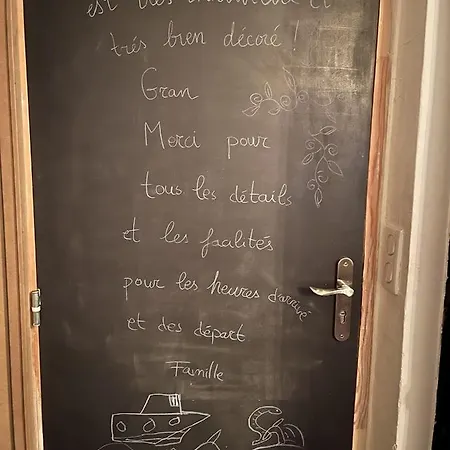 est très
très bien décoré !
Gran
Merci pour
tous les détails
et les faalités
pour les heures d'arrivé
et des départ
Famille